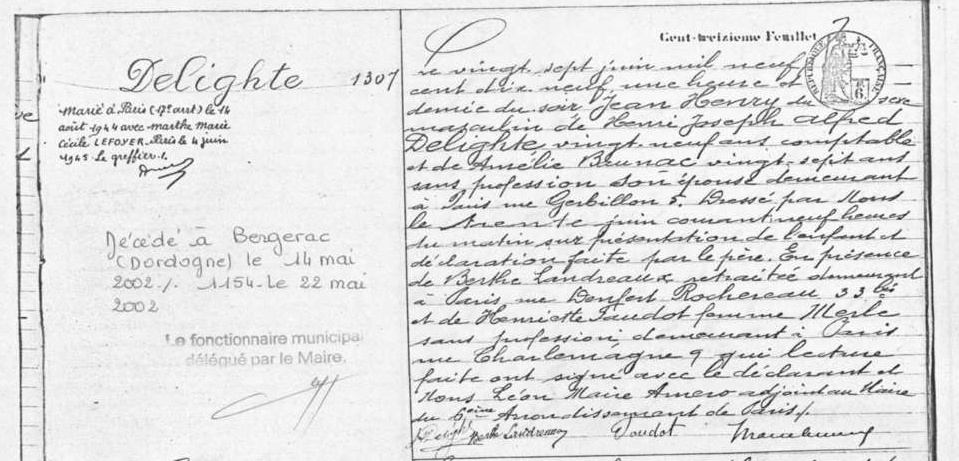 Delighte 1307
Marié à Paris (17e arrt) le 14
août 1944 avec Marthe Marie
Cécile LEFOYER. Paris le 4 juin
1945 Le greffier ./.
Décédé à Bergerac
(Dordogne) le 14 mai
2002 ./. 1154 - Le 22 mai
2002
Le fonctionnaire municipal
délégué par le Maire.
Cent-treizième Feuillet
RÉPUBLIQUE FRANÇAISE
Le vingt sept juin mil neuf
cent dix neuf, une heure et
demie du soir Jean Henry du sexe
masculin de Henri Joseph Alfred
Delighte vingt neuf ans comptable
et de Amélie Brunac vingt-sept ans
sans profession son épouse demeurant
à Paris rue Gerbillon 5. Dressé par Nous
le trente juin courant neuf heures
du matin sur présentation de l'enfant et
déclaration faite par le père. En présence
de Berthe Landreaux retraitée demeurant
à Paris, rue Denfert Rochereau 33 bis
et de Henriette Vaudot femme Merle
sans profession, demeurant à Paris
rue Charlemagne 9 qui lecture
faite ont signé avec le déclarant et
Nous Léon Marie Amero adjoint au Maire
du 6eme Arrondissement de Paris ./.
Delighte Berthe Landreau Vaudot